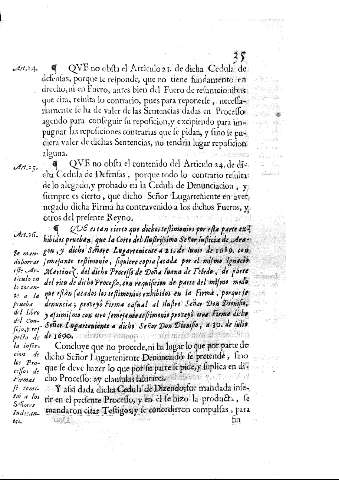 25
Art. 24. ¶ QVE no obsta el Articulo 23. de dicha Cedula de
defensas, porque se responde, que no tiene fundamento en
drecho, ni en Fuero, antes bien del Fuero de
que cita, resulta lo contrario, pues para reponerse, necessa-
riamente se ha de valer de las Sentencias dadas en Processo
agendo para conseguir su reposicion, y excipiendo para im-
pugnar las reposiciones contrarias que se pidan, y sino se pu-
diera valer de dichas Sentencias, no tendria lugar reposicion
alguna.
Art. 25. ¶ QVE no obsta el contenido del Articulo 24. de di-
cha Cedula de Defensas, porque todo lo contrario resulta
de lo alegado, y probado en la Cedula de Denunciacion, y
siempre es cierto, que dicho Señor Lugarteniente en aver
negado dicha Firma ha contravenido à los dichos Fueros, y
otros del presente Reyno.
Art. 26. ¶ QUE están cierto que dichos testimonios por esta parte ex-
hibidos prueban, que la Corte del Ilustrissimo Señor Justicia de Ara-
gon, y dicho Señor Lugarteniente à 21. de Junio de 1689. con
semejante testimonio, siquiere copia sacada por el mismo Ignacio
Martinez, del dicho Processo de Doña Juana de Toledo, de parte
del sito de dicho Processo, con requisicion de parte del mismo modo
que están sacados los testimonios exhibidos en la Firma, porque se
denunció; proveyò Firma casual al Ilustre Señor Don Dionisio,
y assimismo con otro semejante testimonio proveyò una Firma dicho
Señor Lugarteniente à dicho Señor Don Dionisio, à 30. de Iulio
de 1690.
Se man-
este Ar-
ticulo en
lo tocan-
te a la
prueba
del libro
del Con-
sejo, y res-
pecto de
la inser-
cion de
los Pro-
cessos de
Firmas
se remi-
te a los
Señores
Inducian-
tes.
Concluye que no procede, ni ha lugar lo que por parte de
dicho Señor Lugarteniente Denunciado se pretende, sino
que se deve hazer lo que por se parte se pide, y suplica en di-
cho Processo: ay clausulas salutares.
Y assi dada dicha Cedula de Dizendo, fue mandada inse-
rir en el presente Processo, y en el se hizo la producta, se
mandaron citar Testigos, y se concedieron compulsas, para